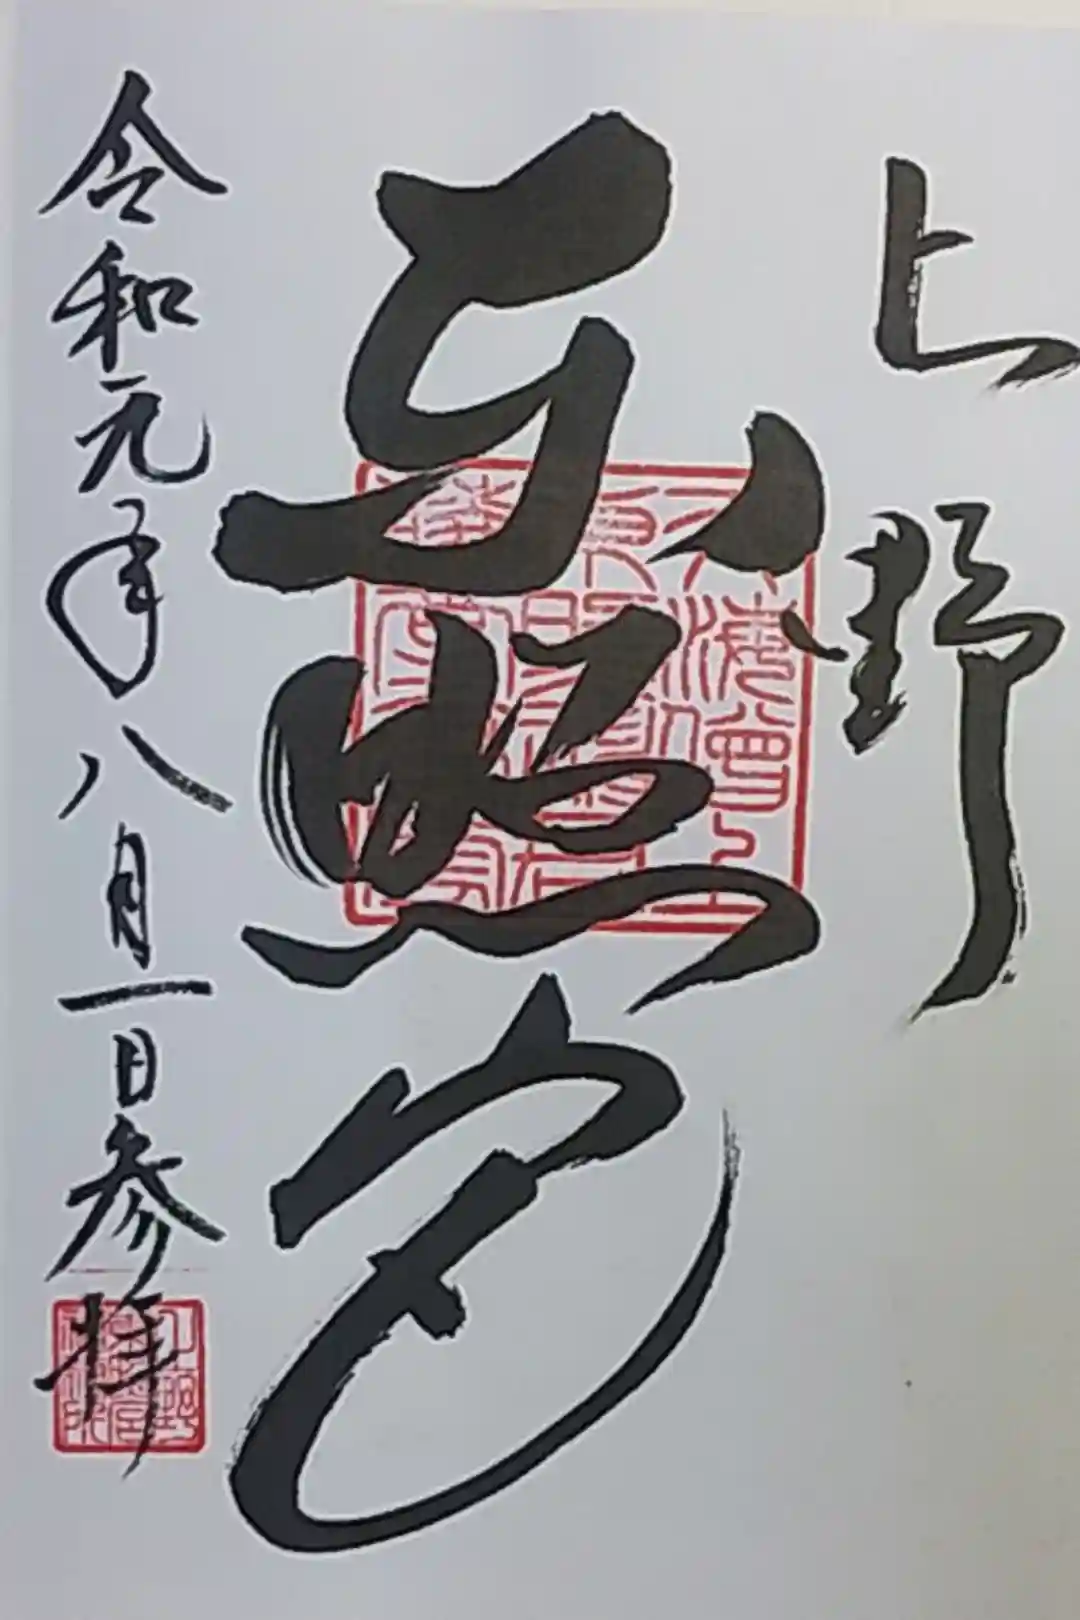 上野
東照宮
令和元年八月一日参拝